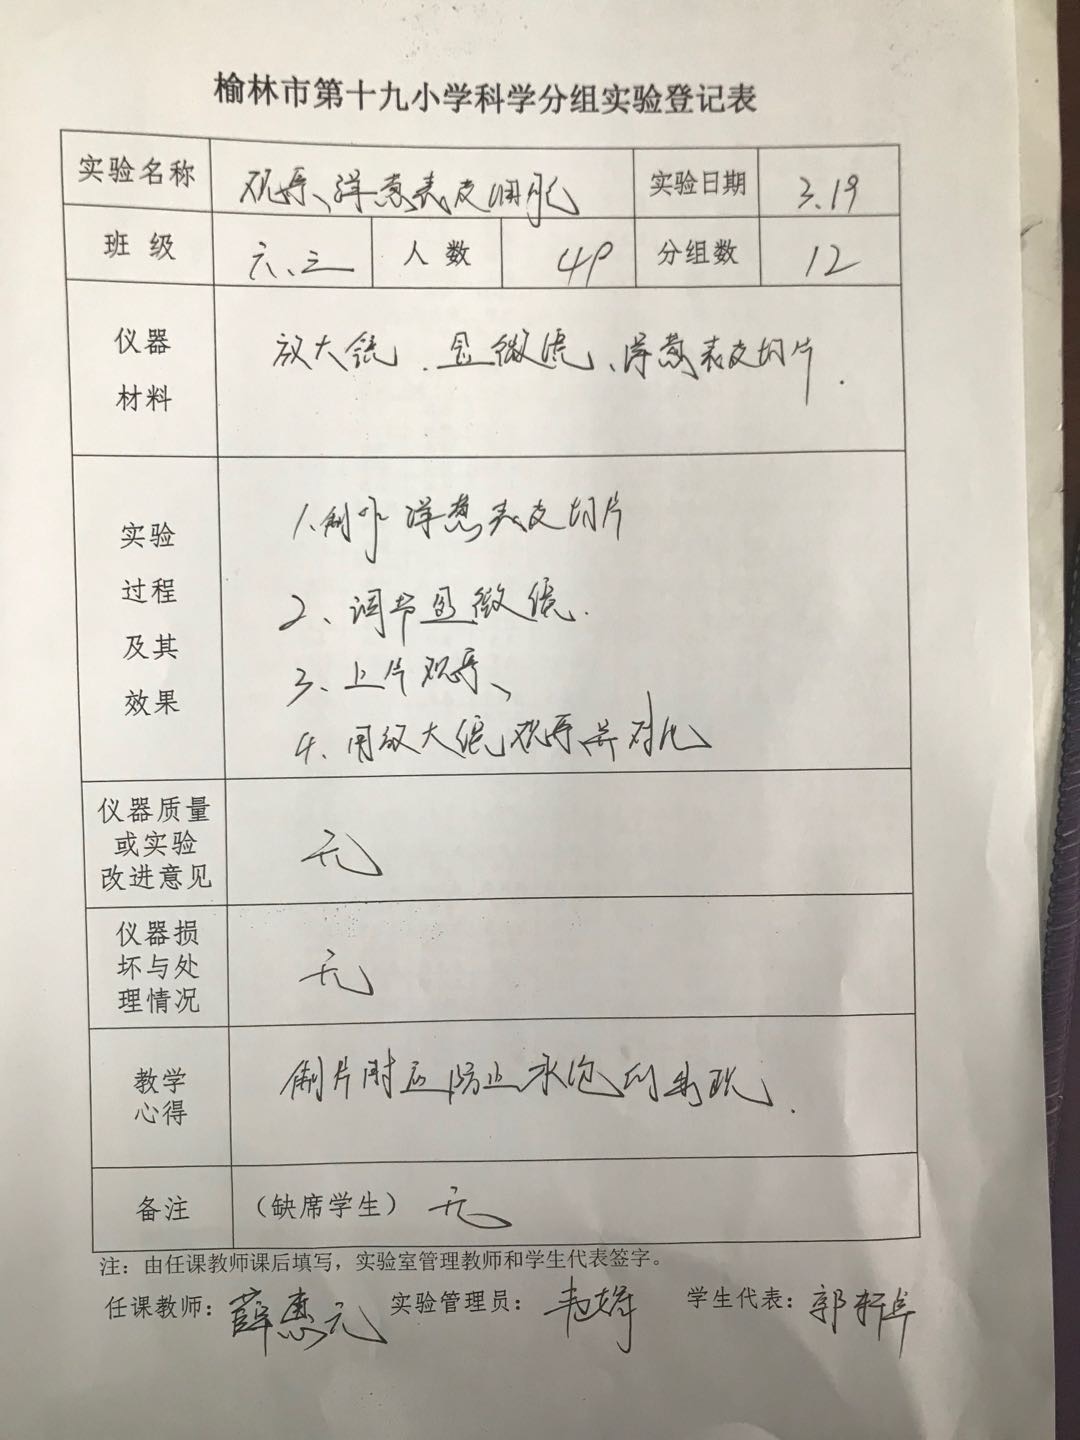 榆林市第十九小学科学分组实验登记表
实验名称 观察洋葱表皮细胞 实验日期 3.19
班级 六、三 人数 49 分组数 12
仪器
材料
放大镜、显微镜、洋葱表皮切片.
实验
过程
及其
效果
1、制作洋葱表皮切片
2、调节显微镜.
3、上片观察、
4、用放大镜观察并对比
仪器质量
或实验
改进意见
无
仪器损
坏与处
理情况
无
教学
心得
制片时应防止水泡的出现.
备注 (缺席学生) 无
注：由任课教师课后填写，实验室管理教师和学生代表签字。
任课教师：薛惠元 实验管理员： 学生代表：郭轩